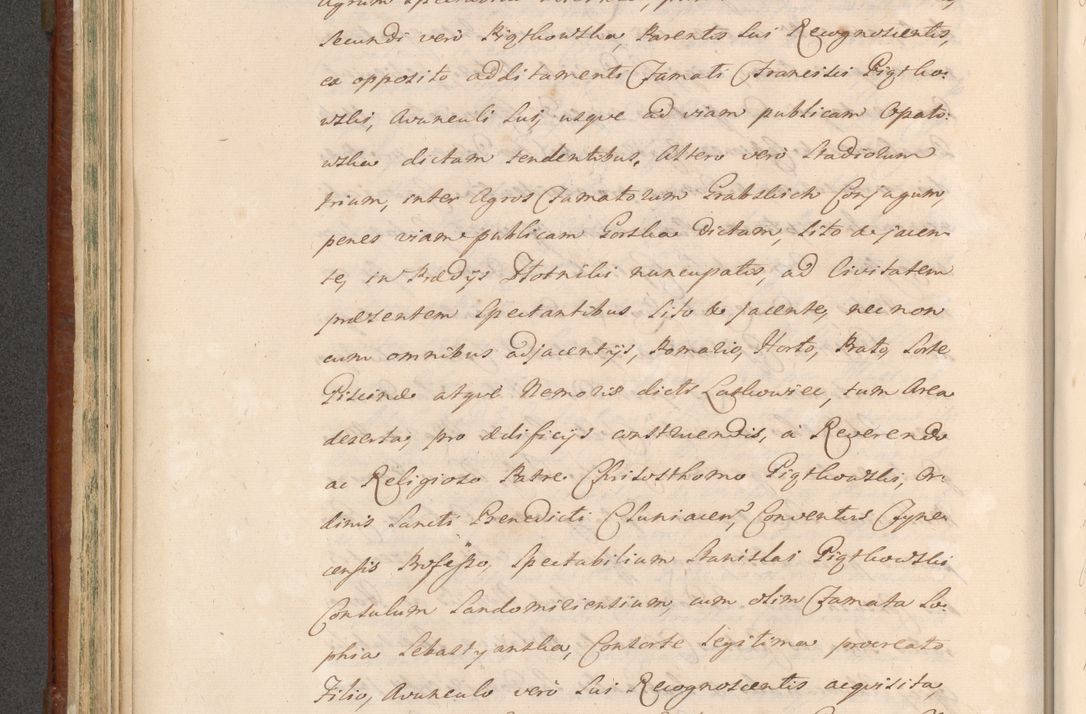 secundi verò Piątkowska, Parentis sui Recognoscentis,
ex opposito additamenti Famati Francisci Piątko-
wski, Avunculi sui, usque ad viam publicam Opato-
wska dictam tendentibus. Altero verò Stadiorum
trium, inter Agros Famatorum Grabskich Conjugum,
penes viam publicam Gorska dictam, sito & jacen-
te, in Prædijs Złotniki nuncupatis, ad Civitatem
præsentem spectantibus sito & jacente, necnon
cum omnibus adjacentijs, Pomario, Horto, Prato, Sorte
Piscinæ atque Nemoris dicti Laskowiec, tum Area
deserta, pro ædificijs construendis, à Reverendo
ac Religioso Patre Chrisosthomo Piątkowski, Or-
dinis Sancti Benedicti Cluniacen, Conventus Tyne-
censis Professo, Spectabilium Stanislai Piątkowski
Consulum Sandomiriensium, cum olim Famata So-
phia Sebastyanska, Consorte legitima procreato
Filio, Avunculo verò sui Recognoscentis acquisita,